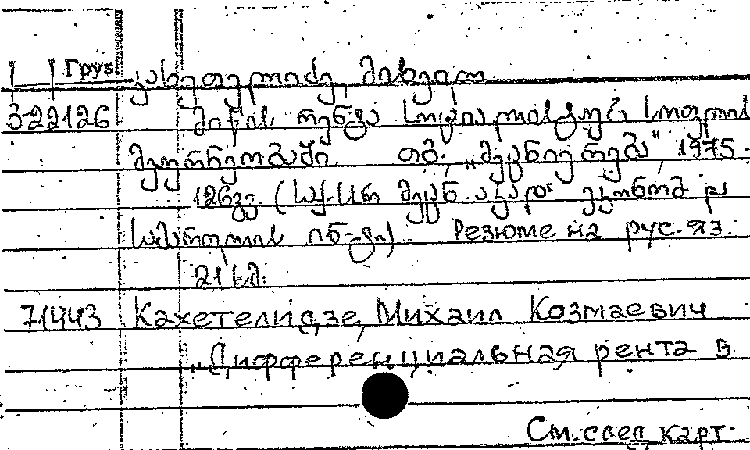 Груз
კახეთელიძე, მიხეილ
3-22126 მიწის რენტა სოციალისტურ სოფლის
მეურნეობაში. თბ., „მეცნიერება", 1975.
126გვ. (საქ. სსრ მეცნ. აკად. ეკონომ. და
სამართლის ინ-ტი) Резюме на рус. яз.
21 სმ.
71443 Кахетелидзе, Михаил Козмаевич
„Дифференциальная рента в
См. след. карт.